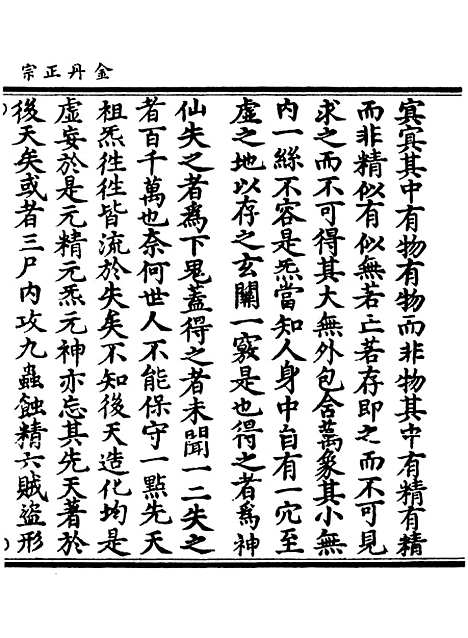 金丹正宗
㝠㝠其中有物有物而非物其中有精有精
而非精似有似無若亡若存即之而不可見
求之而不可得其大無外包含萬象其小無
内一絲不容是炁當知人身中自有一穴至
虚之地以存之玄關一竅是也得之者爲神
仙失之者爲下鬼蓋得之者未聞一二失之
者百千萬也奈何世人不能保守一點先天
祖炁徃徃皆流於失矣不知後天造化均是
虚妄於是元精元炁元神亦忘其先天著於
後天矣或者三尸内攻九蟲蝕精六賊盜形